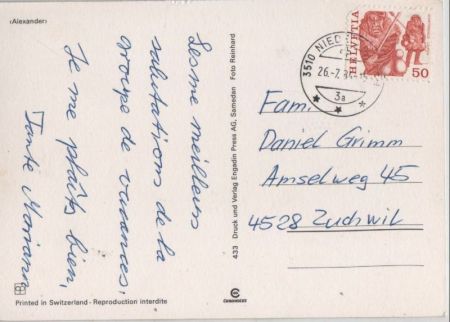 (Alexander)
Les me meilleurs
salutations de la
groupe de vacances,
Je me plaîts bien,
Tante Mariann
Printed in Switzerland - Reproduction interdite
433 Druck und Verlag Engadin Press AG, Samedan Foto Reinhard
HELVETIA
50
3510 NIED
26.-7.8
3a
Fam.
Daniel Grimm
Amselweg 45
4528 Zuchwil